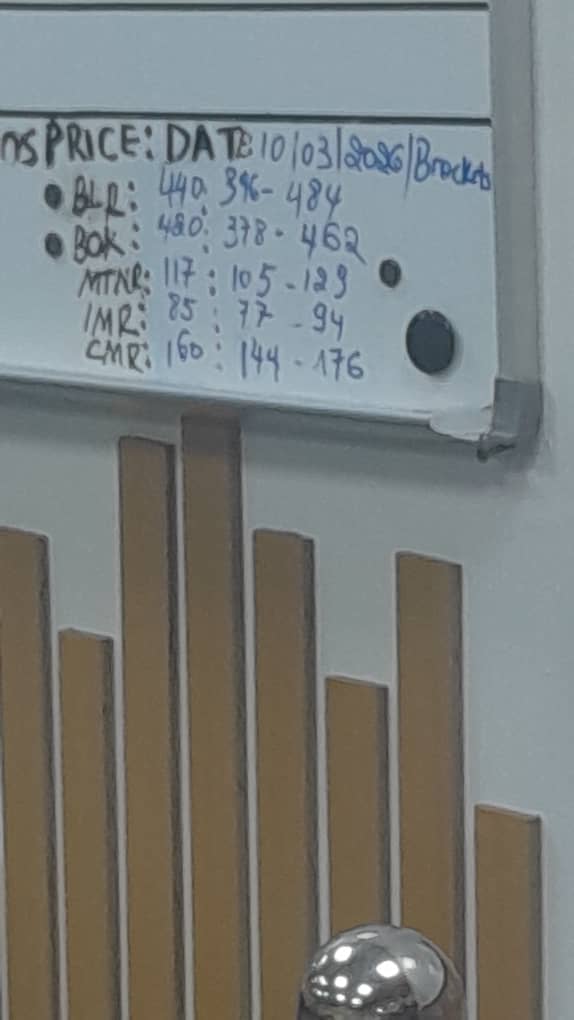 ns PRICE: DATE 10/03/2026/Brackets
• BLR: 440: 396- 484
• BOK: 420: 378- 462
MTNR: 117: 105-129
IMR: 85: 77-94
CMR: 160: 144-176